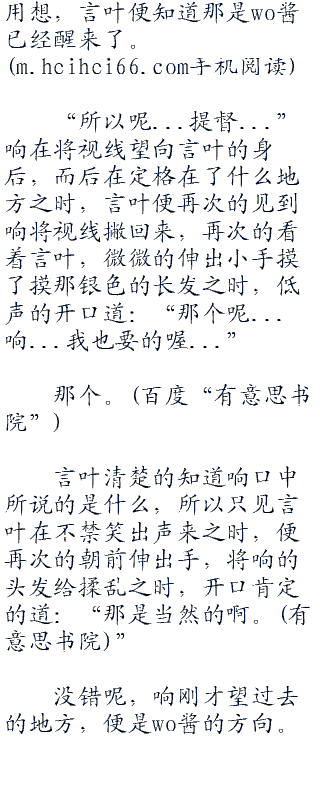 用想，言叶便知道那是wo酱
已经醒来了。
(m.hcihci66.com手机阅读)
“所以呢...提督...”
响在将视线望向言叶的身
后，而后在定格在了什么地
方之时，言叶便再次的见到
响将视线撇回来，再次的看
着言叶，微微的伸出小手摸
了摸那银色的长发之时，低
声的开口道：“那个呢...
响...我也要的喔...”
那个。(百度“有意思书
院”)
言叶清楚的知道响口中
所说的是什么，所以只见言
叶在不禁笑出声来之时，便
再次的朝前伸出手，将响的
头发给揉乱之时，开口肯定
的道：“那是当然的啊。(有
意思书院)”
没错呢，响刚才望过去
的地方，便是wo酱的方向。